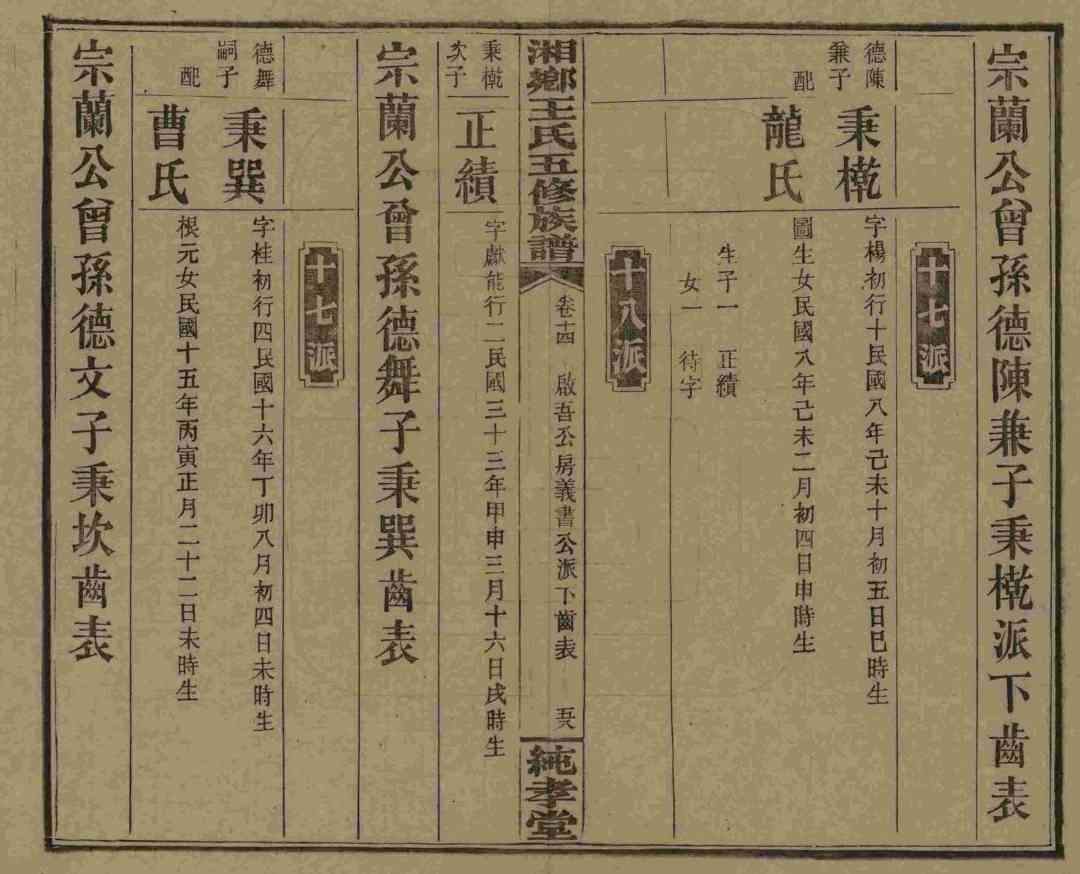 宗蘭公曾孫德陳兼子秉㰘派下齒表
十七派
德陳兼子
秉㰘
字楊初行十民國八年己未十月初五日巳時生
配
龍氏
圖生女民國八年己未二月初四日申時生
生子一 正績
女一 待字
十八派
湘鄉王氏五修族譜
卷十四 啟吾公房義書公派下齒表 五八
純孝堂
秉㰘次子
正績
字獻能行二民國三十三年甲申三月十六日戌時生
宗蘭公曾孫德舞子秉巽齒表
十七派
德舞嗣子
秉巽
字桂初行四民國十六年丁卯八月初四日未時生
配
曹氏
根元女民國十五年丙寅正月二十二日未時生
宗蘭公曾孫德文子秉坎齒表